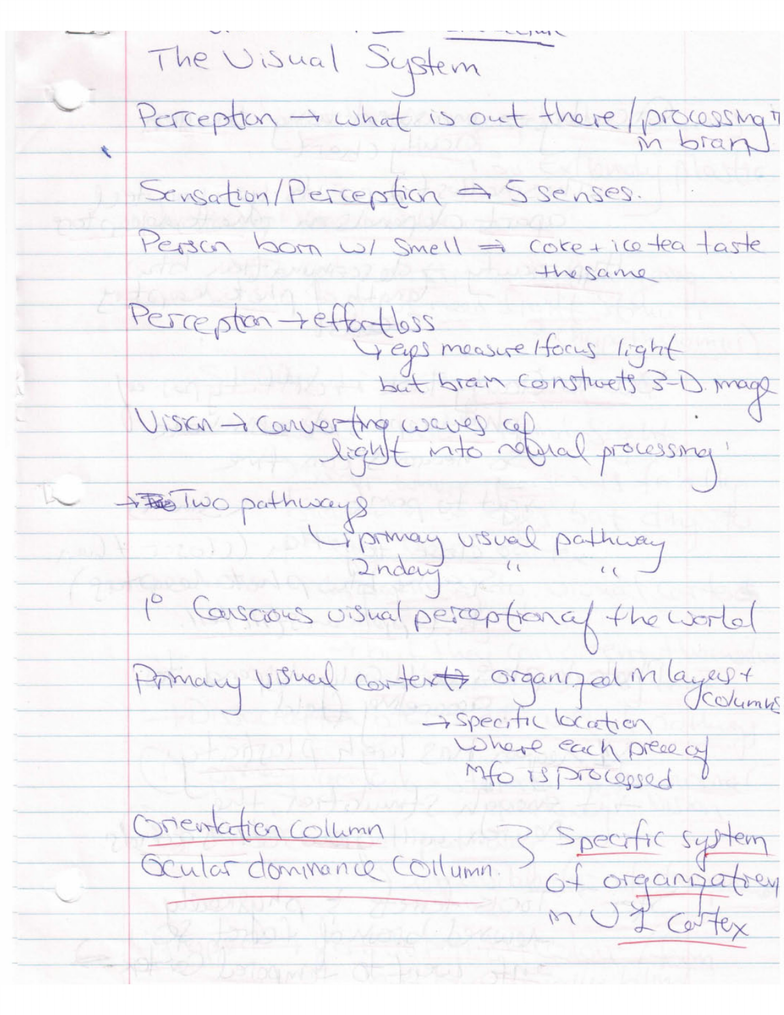 The Visual System
Perception → what is out there/processing
in brain
Sensation/Perception ⇒ 5 senses.
Person born w/ Smell ⇒ coke + ice tea taste
the same
Perception → effortless
↳ eyes measure/focus light
but brain constructs 3-D image
Vision → Converting waves of
light into neural processing
→ Two pathways
↳ primary visual pathway
2nday " "
1° Conscious visual perception of the world
Primary visual cortex → organized in layers +
columns
→ Specific location
where each piece of
info is processed
Orientation column } Specific system
Ocular dominance collumn. of organization
in V1 cortex